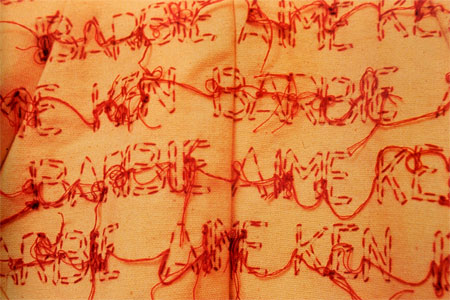 BARBIE AIME KE
E KEN BARBIE
BARBIE AIME KE
ARBIE AIME KEN B